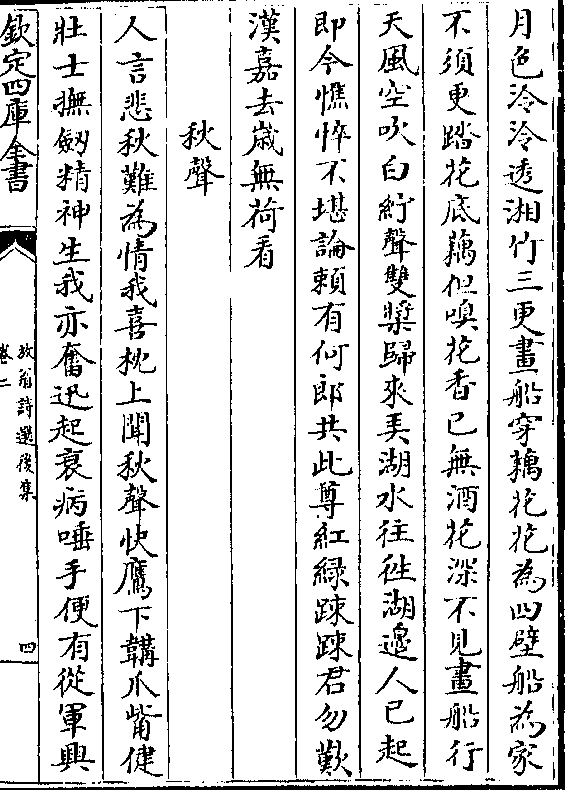 月色泠泠透湘竹三更畫船穿藕花花為四壁船為家
不須更踏花底藕但嗅花香已無酒花深不見畫船行
天風空吹白紵聲雙槳歸來弄湖水往往湖邊人已起
即今憔悴不堪論賴有何郎共此尊紅綠踈踈君勿歎
漢嘉去歳無荷看
秋聲
人言悲秋難為情我喜枕上聞秋聲快鷹下鞲爪觜健
壯士撫劒精神生我亦奮迅起衰病唾手便有從軍興
欽定四庫全書
放翁詩選後集
卷二
四